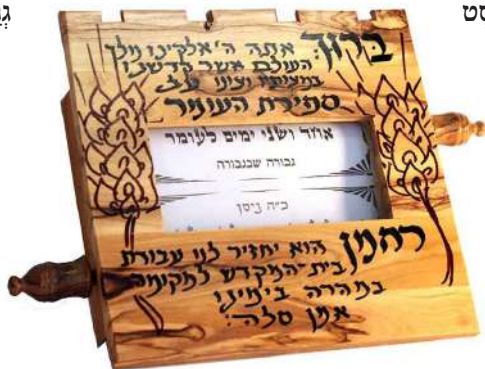 סט
ברוך: אתה ה' אלקינו מלך
העולם אשר קדשנו
במצותיו וצונו על
ספירת העומר
אחד ושני ימים לעומר
גבורה שבגבורה
כ"ה ניסן
רחמן הוא יחזיר לנו עבודת
בית-המקדש למקומה
במהרה בימינו
אמן סלה: